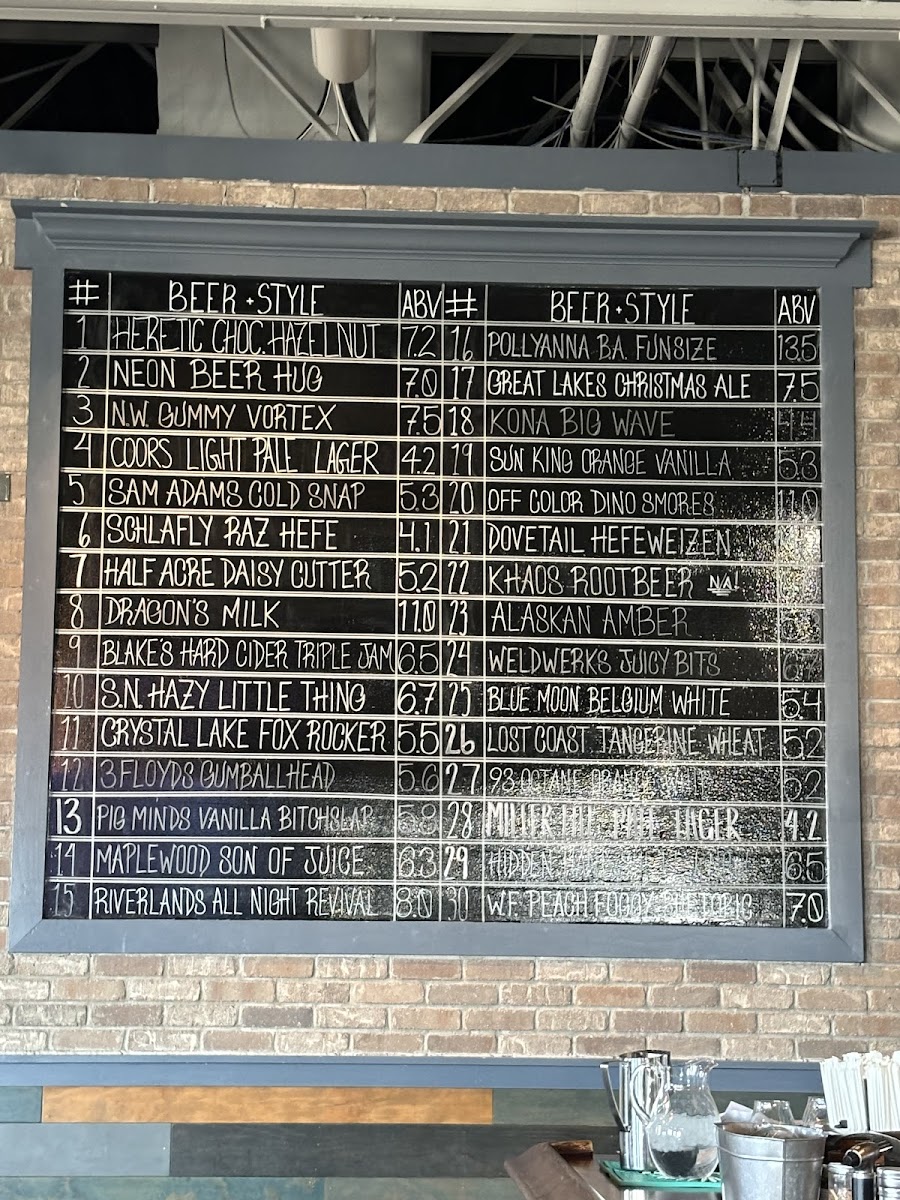 # BEER + STYLE ABV
1 HERETIC CHOC. HAZELNUT 7.2
2 NEON BEER HUG 7.0
3 N.W. GUMMY VORTEX 7.5
4 COORS LIGHT PALE LAGER 4.2
5 SAM ADAMS COLD SNAP 5.3
6 SCHLAFLY RAZ HEFE 4.1
7 HALF ACRE DAISY CUTTER 5.2
8 DRAGON'S MILK 11.0
9 BLAKE'S HARD CIDER TRIPLE JAM 6.5
10 S.N. HAZY LITTLE THING 6.7
11 CRYSTAL LAKE FOX ROCKER 5.5
12 3 FLOYDS GUMBALLHEAD 5.6
13 PIG MINDS VANILLA BITCHSLAP 5.8
14 MAPLEWOOD SON OF JUICE 6.3
15 RIVERLANDS ALL NIGHT REVIVAL 8.0
# BEER + STYLE ABV
16 POLLYANNA B.A. FUNSIZE 13.5
17 GREAT LAKES CHRISTMAS ALE 7.5
18 KONA BIG WAVE 4.4
19 SUN KING ORANGE VANILLA 5.3
20 OFF COLOR DINO SMORES 11.0
21 DOVETAIL HEFEWEIZEN
22 KHAOS ROOTBEER NA!
23 ALASKAN AMBER
24 WELDWERKS JUICY BITS 6.7
25 BLUE MOON BELGIUM WHITE 5.4
26 LOST COAST TANGERINE WHEAT 5.2
27 93 OCTANE ORANGE 5.2
28 MILLER LAGER 4.2
29 HIDDEN 6.5
30 W.F. PEACH FOGGY RHETORIC 7.0